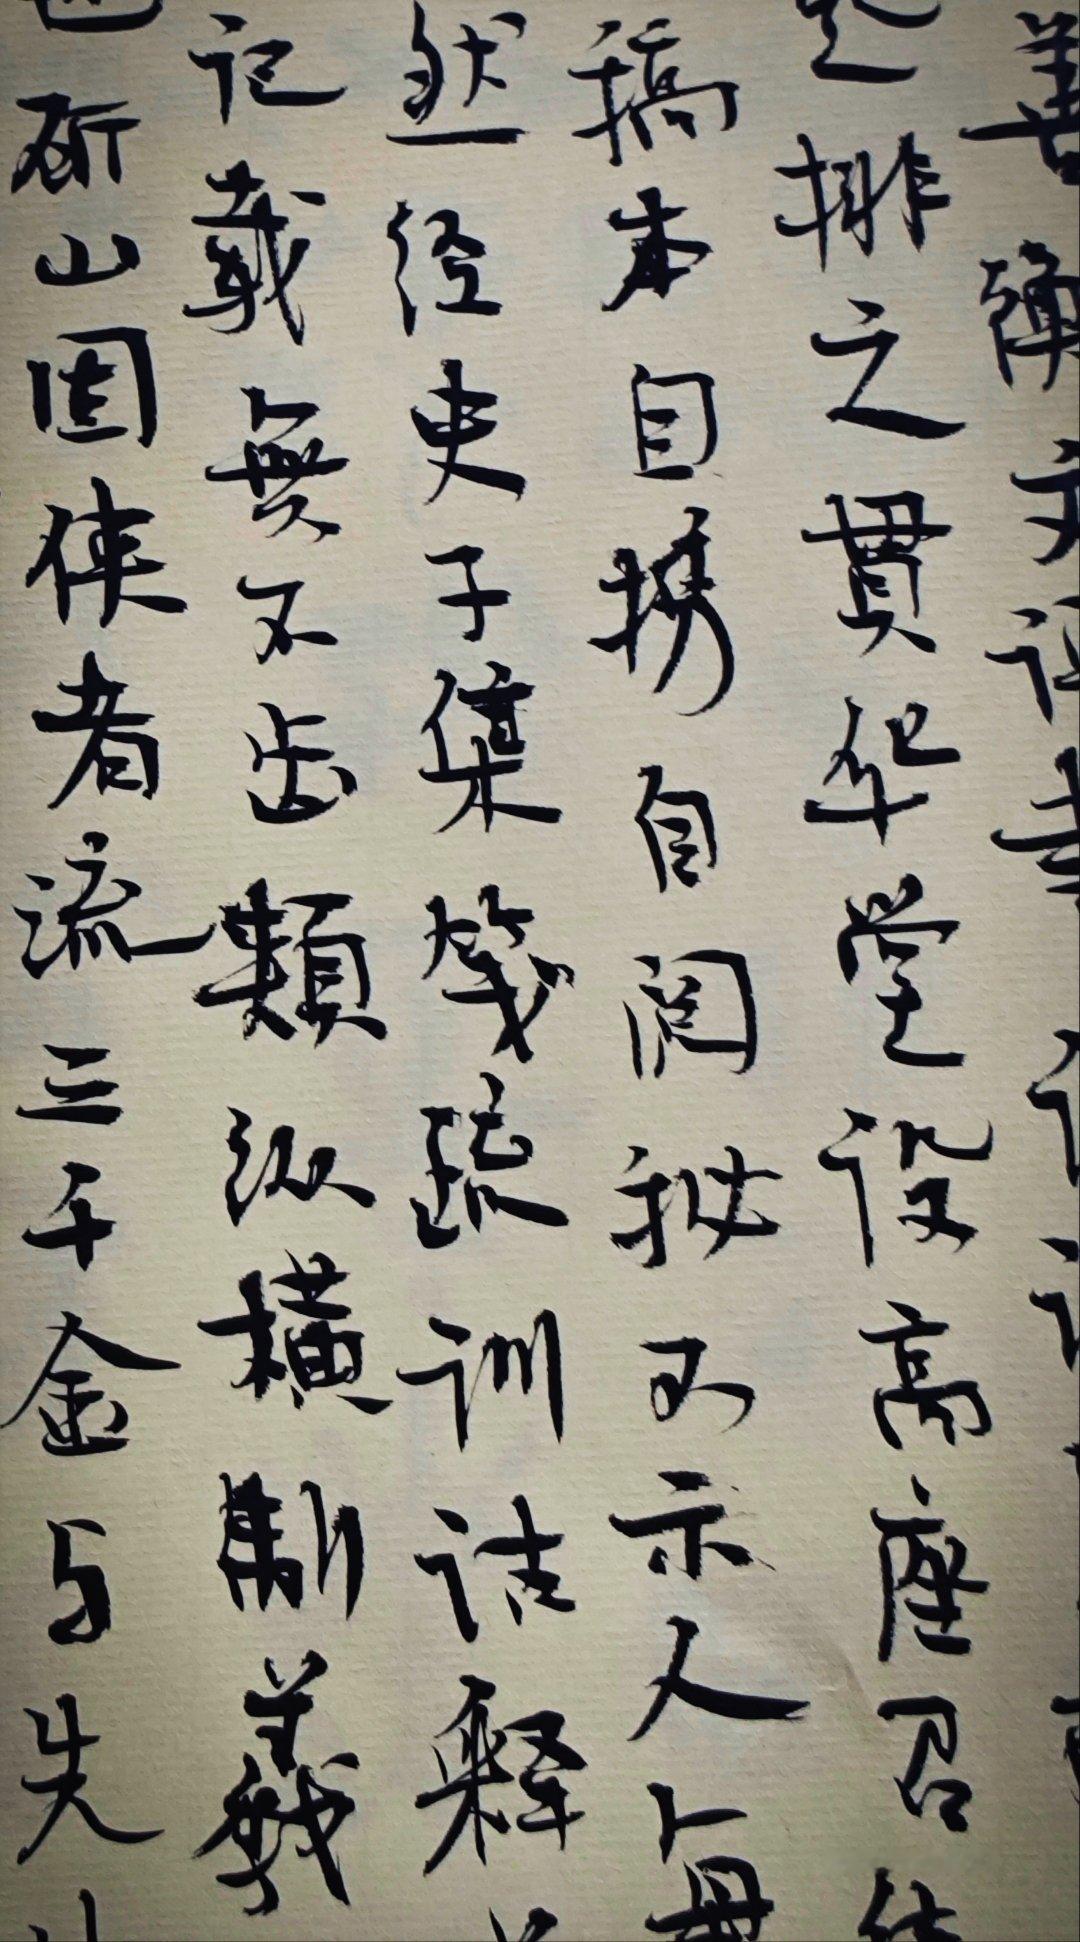 善衡文评
起排之贯华堂设高座召
稿本自携自阅秘不示人每
然经史子集笺疏训诂释
记载無不出類纵横制義
斫山固侠者流三千金与先